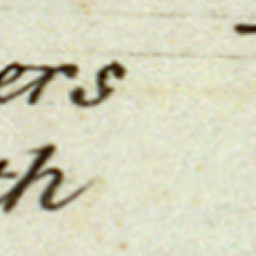 ers
th